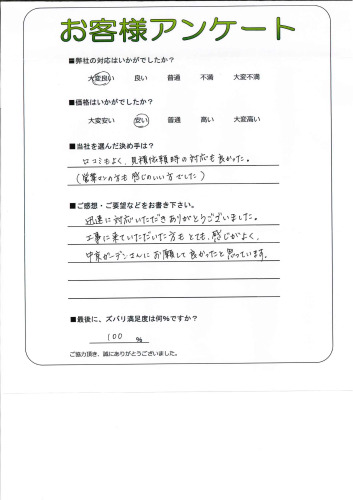 お客様アンケート
■弊社の対応はいかがでしたか?
大変良い 良い 普通 不満 大変不満
■価格はいかがでしたか?
大変安い 安い 普通 高い 大変高い
■当社を選んだ決め手は?
口コミもよく、見積依頼時の対応も良かった。
(営業マンの方も感じのいい方でした)
■ご感想・ご要望などをお書き下さい。
迅速に対応いただきありがとうございました。
工事に来ていただいた方もとても、感じがよく、
中京ガーデンさんにお願して良かったと思っています。
■最後に、ズバリ満足度は何%ですか?
100 %
ご協力頂き、誠にありがとうございました。